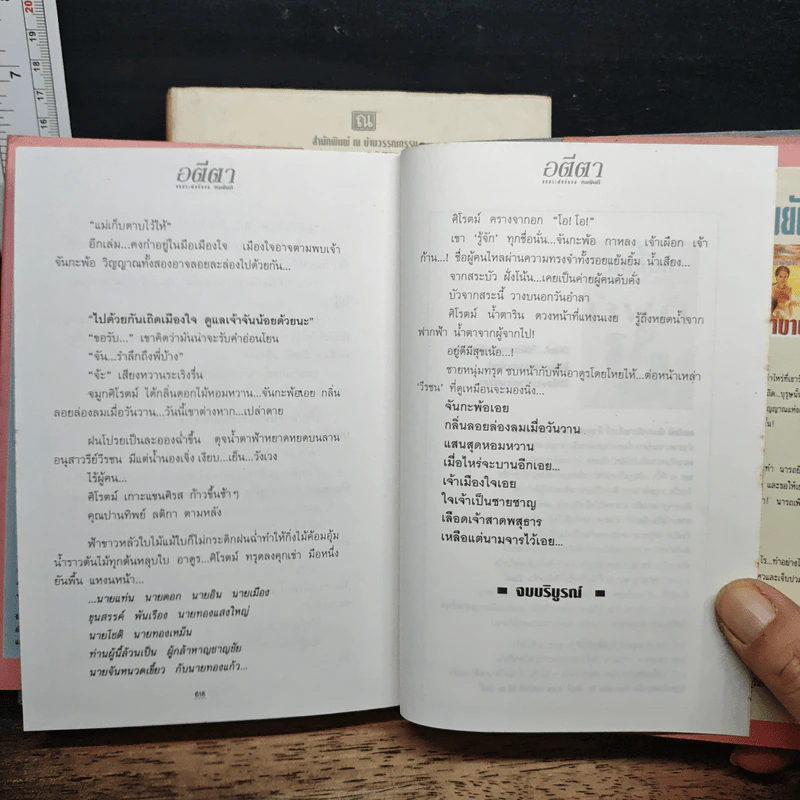 ณ
สำนักพิมพ์ ณ บ้านวรรณกรรม
อตีตา
"แม่เก็บดาบไว้ให้"
อีกเล่ม...คงกำอยู่ในมือเมืองใจ เมืองใจอาจตามพบเจ้า
จันกะพ้อ วิญญาณทั้งสองอาจลอยละล่องไปด้วยกัน...
"ไปด้วยกันเถิดเมืองใจ ดูแลเจ้าจันน้อยด้วยนะ"
"ขอรับ..." เขาคิดว่ามันน่าจะรับคำอ่อนโยน
"จัน...รำลึกถึงพี่บ้าง"
"จ้ะ" เสียงหวานระเริงรื่น
จมูกศิโรตม์ ได้กลิ่นดอกไม้หอมหวาน...จันกะพ้อเอย กลิ่น
ลอยล่องลมเมื่อวันวาน...วันนี้เขาต่างหาก...เปล่าดาย
ฝนโปรยเป็นละอองฉ่ำชื้น ดุจน้ำตาฟ้าหยาดหยดบนลาน
อนุสาวรีย์วีรชน มีแต่น้ำนองเจิ่ง เงียบ...เย็น...วังเวง
ไร้ผู้คน...
ศิโรตม์ เกาะแขนศิรส ก้าวขึ้นช้าๆ
คุณปานทิพย์ ลติกา ตามหลัง
ฟ้าขาวหลัวใบไม้แม้ใบก็ไม่กระดิกฝนฉ่ำทำให้กิ่งไม้ค้อมอุ้ม
น้ำราวต้นไม้ทุกต้นหลุบใบ อาดูร...ศิโรตม์ ทรุดลงคุกเข่า มือหนึ่ง
ยันพื้น แหงนหน้า...
...นายแท่น นายดอก นายอิน นายเมือง
ขุนสรรค์ พันเรือง นายทองแสงใหญ่
นายโชติ นายทองเหม็น
ท่านผู้นี้ล้วนเป็น ผู้กล้าหาญชาญชัย
นายจันหนวดเขี้ยว กับนายทองแก้ว...
๖๑๖
อตีตา
ศิโรตม์ ครางจากอก "โอ! โอ!"
เขา 'รู้จัก' ทุกชื่อนั่น...จันกะพ้อ กาหลง เจ้าเผือก เจ้า
ก้าน...! ชื่อผู้คนไหลผ่านความทรงจำทั้งรอยแย้มยิ้ม น้ำเสียง...
จากสระบัว ฝั่งโน้น...เคยเป็นค่ายผู้คนคับคั่ง
บัวจากสระนี้ วางบนอกวันอำลา
ศิโรตม์ น้ำตาริน ดวงหน้าที่แหงนเงย รู้ถึงหยดน้ำจาก
ฟากฟ้า น้ำตาจากผู้จากไป!
อยู่ดีมีสุขเน้อ...!
ชายหนุ่มทรุด ซบหน้ากับพื้นอาดูรโดยโหยไห้...ต่อหน้าเหล่า
'วีรชน' ที่ดูเหมือนจะมองนิ่ง...
จันกะพ้อเอย
กลิ่นลอยล่องลมเมื่อวันวาน
แสนสุดหอมหวาน
เมื่อไหร่จะบานอีกเอย...
เจ้าเมืองใจเอย
ใจเจ้าเป็นชายชาญ
เลือดเจ้าสาดพสุธาร
เหลือแต่นามจารไว้เอย...
จบบริบูรณ์